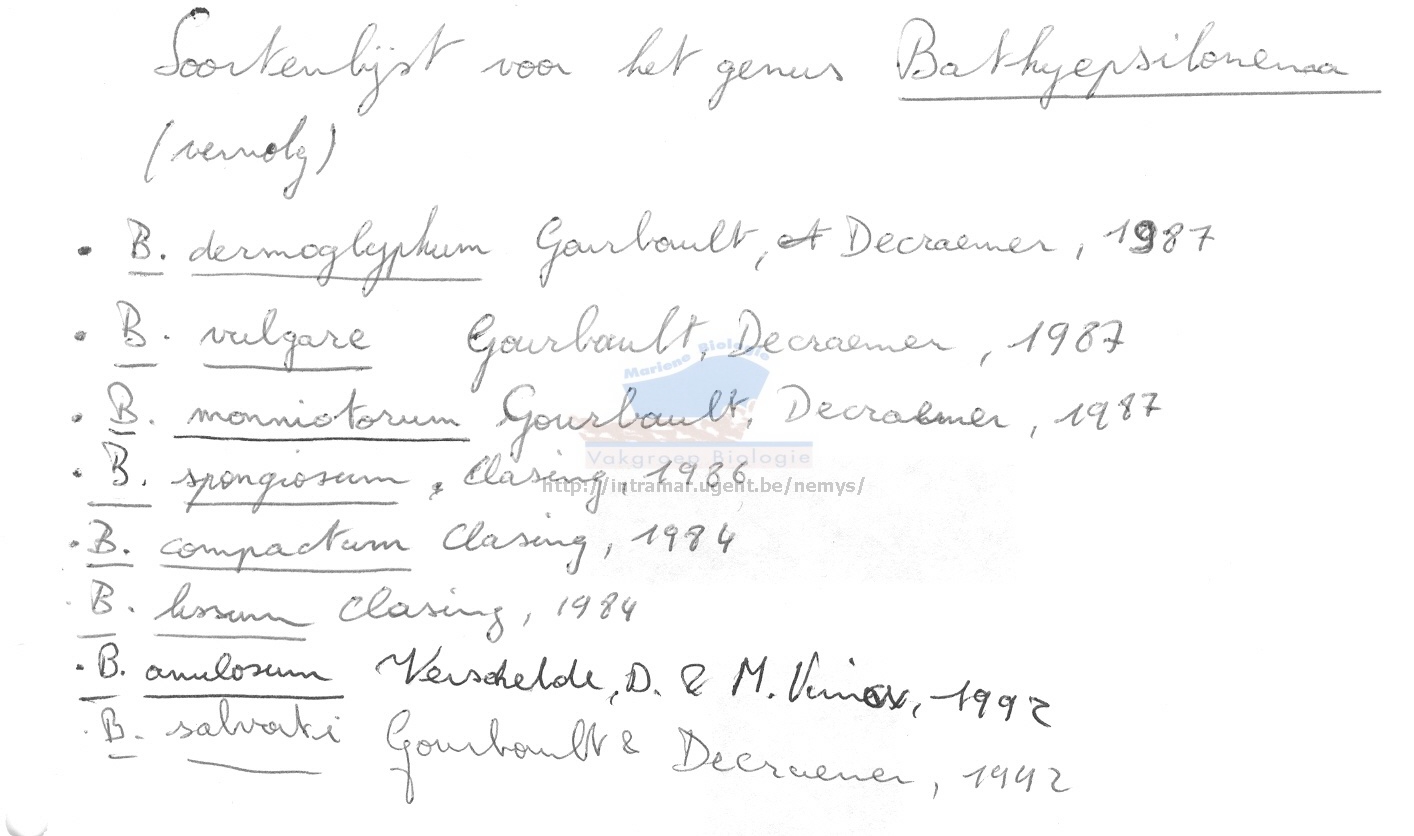 Soortenlijst voor het genus Bathyepsilonema
(vervolg)
• B. dermoglyphum Gourbault, et Decraemer, 1987
• B. vulgare Gourbault, Decraemer, 1987
Mariene Biologie
• B. monniotorum Gourbault, Decraemer, 1987
Vakgroep Biologie
• B. spongiosum, Clasing, 1986
http://intramar.ugent.be/nemys/
• B. compactum Clasing, 1984
• B. lissum Clasing, 1984
• B. anulosum Verschelde, D. & M. Vincx, 1992
• B. salvati Gourbault & Decraemer, 1992